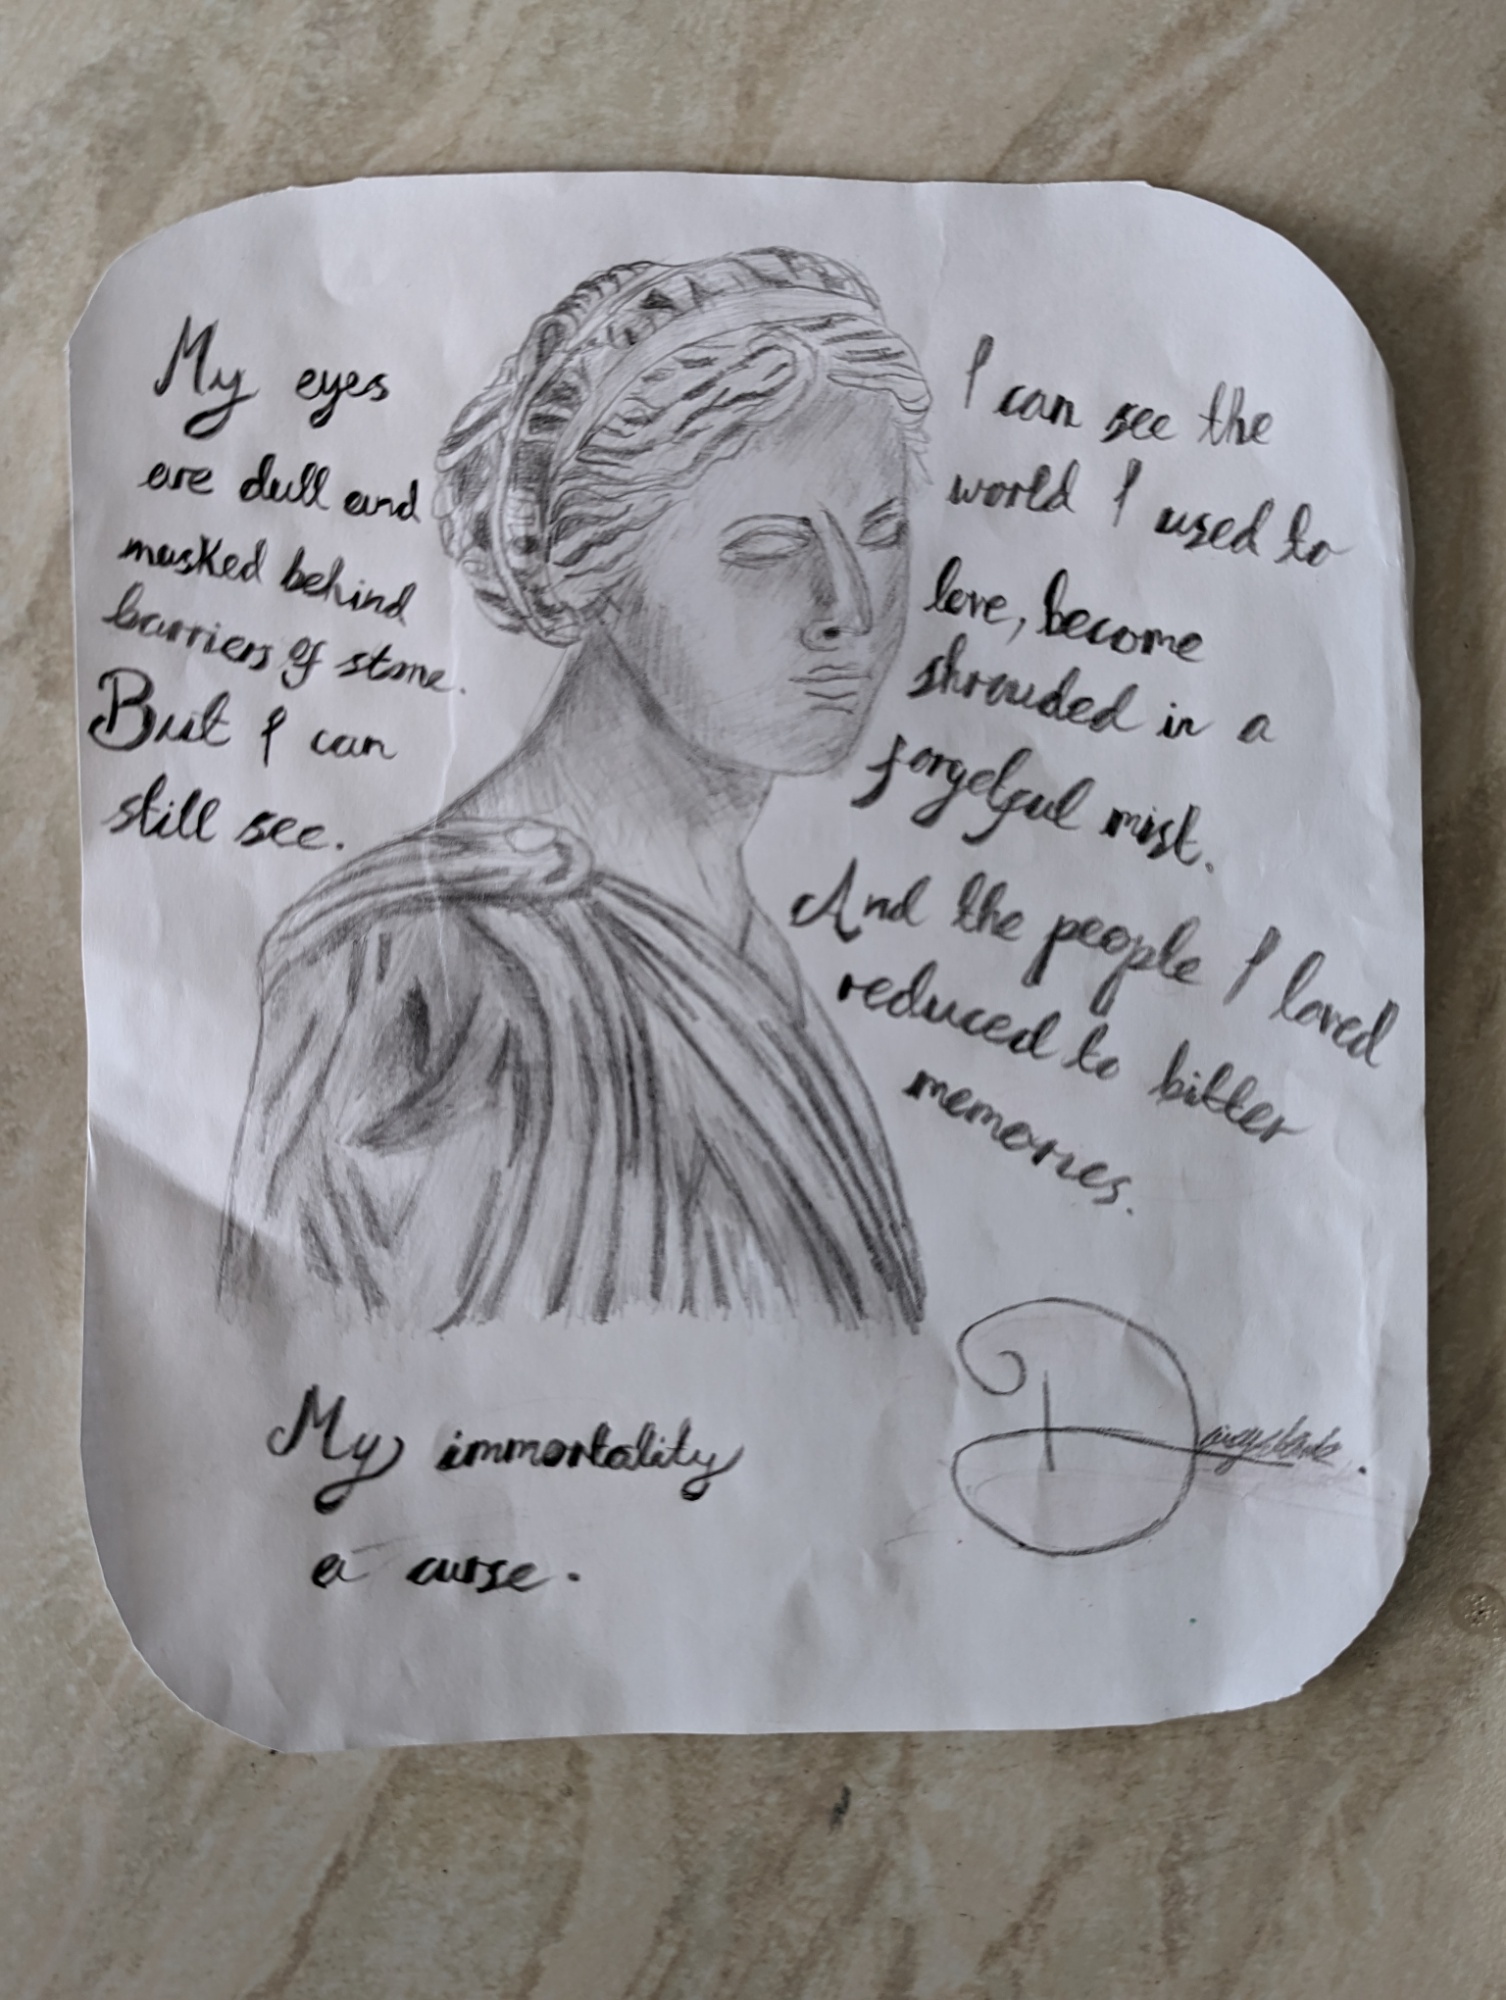 My eyes
are dull and
masked behind
barriers of stone.
But I can
still see.
I can see the
world I used to
love, become
shrouded in a
forgetful mist.
And the people I loved
reduced to bitter
memories.
My immortality
a curse.